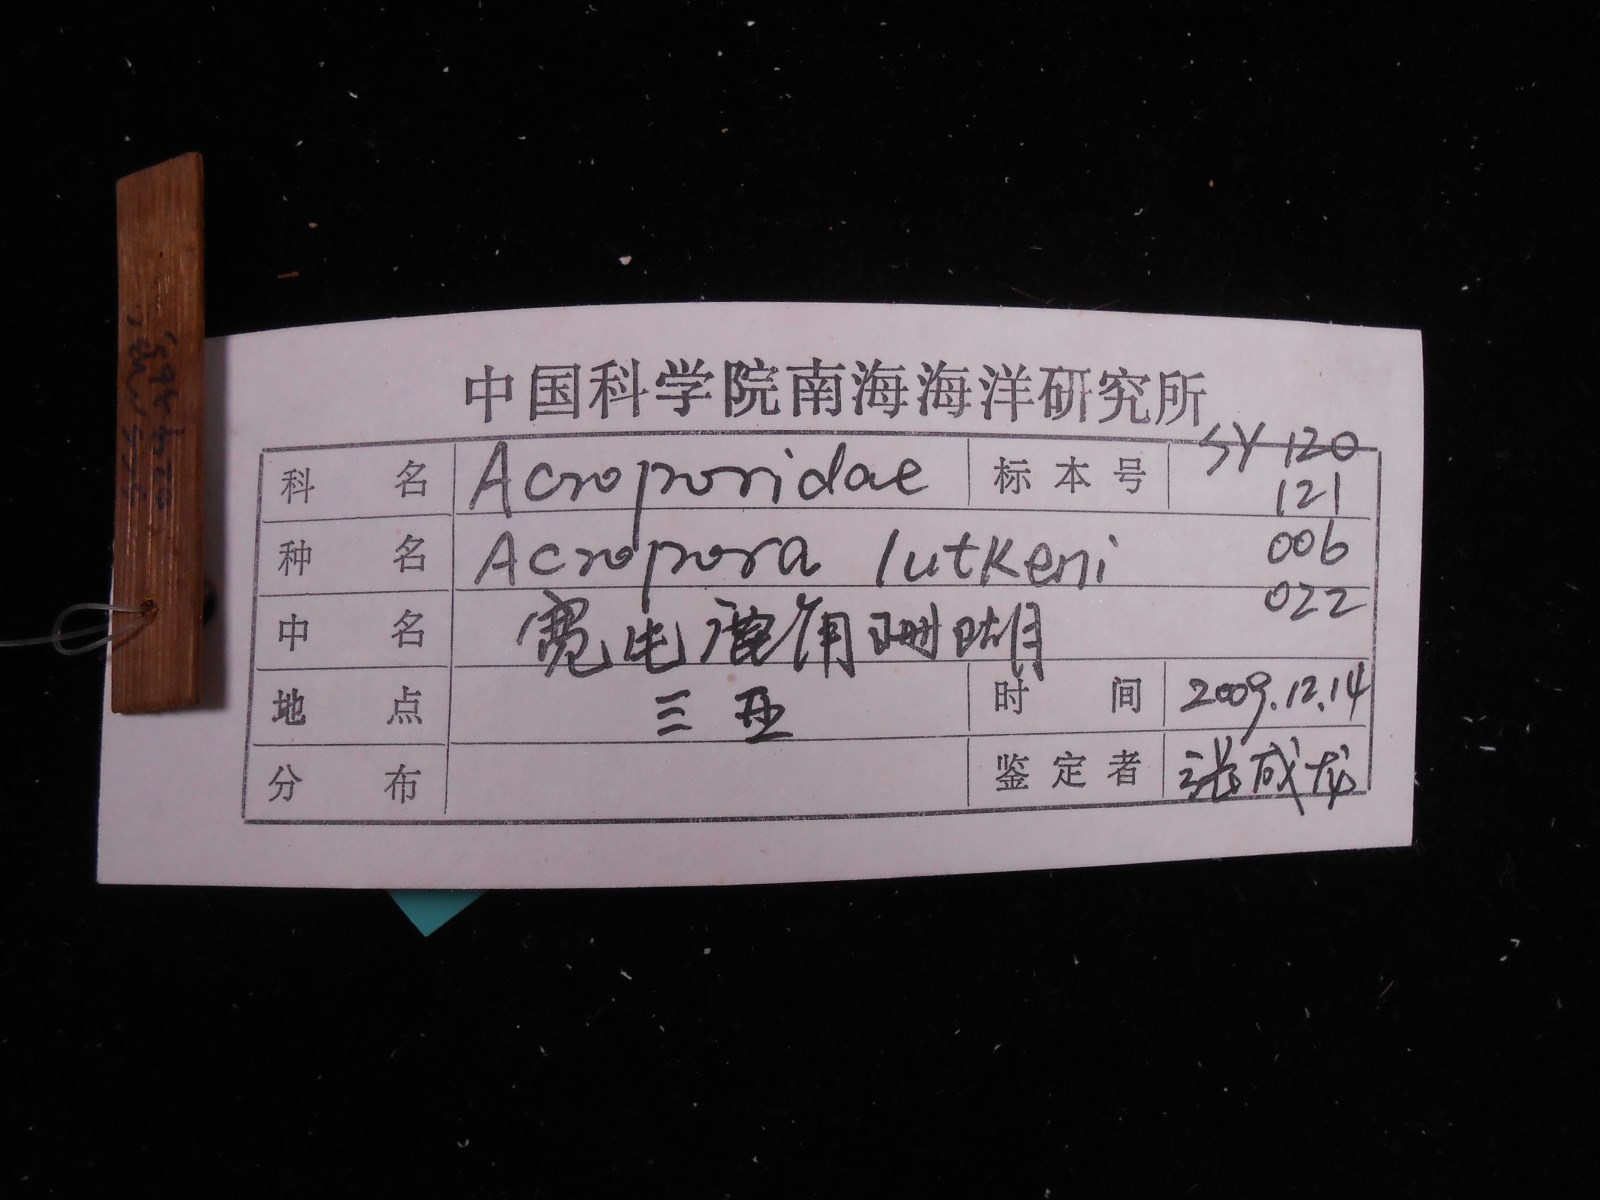 中国科学院南海海洋研究所
科 名 Acroporidae 标本号 SY 120
121
种 名 Acropora lutkeni 006
022
中 名 鹿角珊瑚
地 点 三亚 时 间 2009.12.14
分 布 鉴定者 张成龙